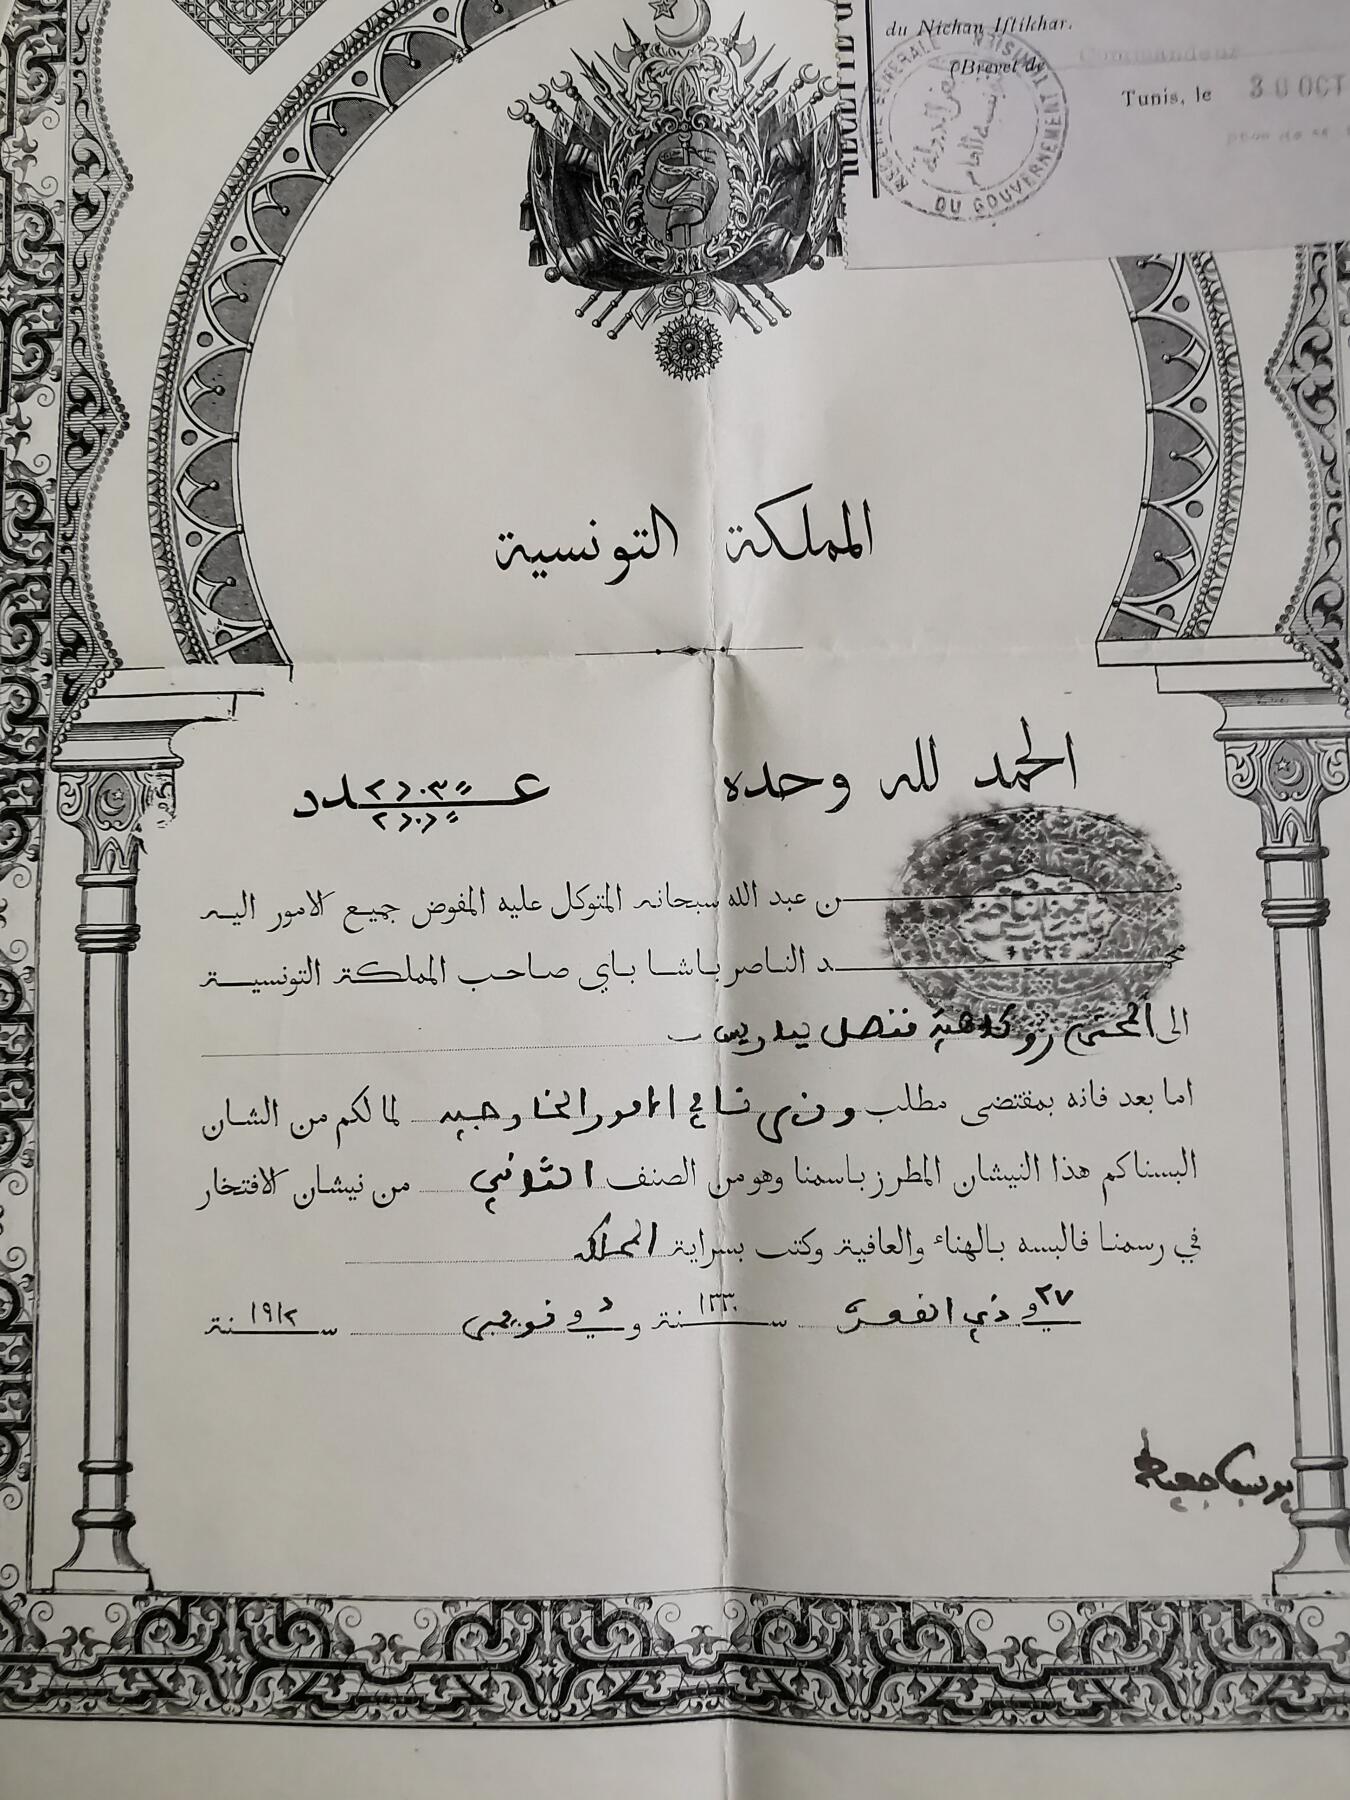 du Nichan Iftikhar.
(Brevet de Commandeur
Tunis, le 30 OCT
DU GOUVERNEMENT TUNISIEN
المملكة التونسية
الحمد لله وحده
عدد
من عبد الله سبحانه المتوكل عليه المفوض جميع الامور اليه
محمد الناصر باشا باي صاحب المملكة التونسية
الى المحترم كاهية قنصل
اما بعد فانه بمقتضى مطلب وزيرنا في الامور الخارجية لما لكم من الشان
البسناكم هذا النيشان المطرز باسمنا وهو من الصنف الثاني من نيشان الافتخار
في رسمنا فالبسه بالهناء والعافية وكتب بسراية المملكة
في ٢٧ ذي القعدة سنة ١٣٣٠ وفي نوفمبر سنة ١٩١٢
يوسف جعيط